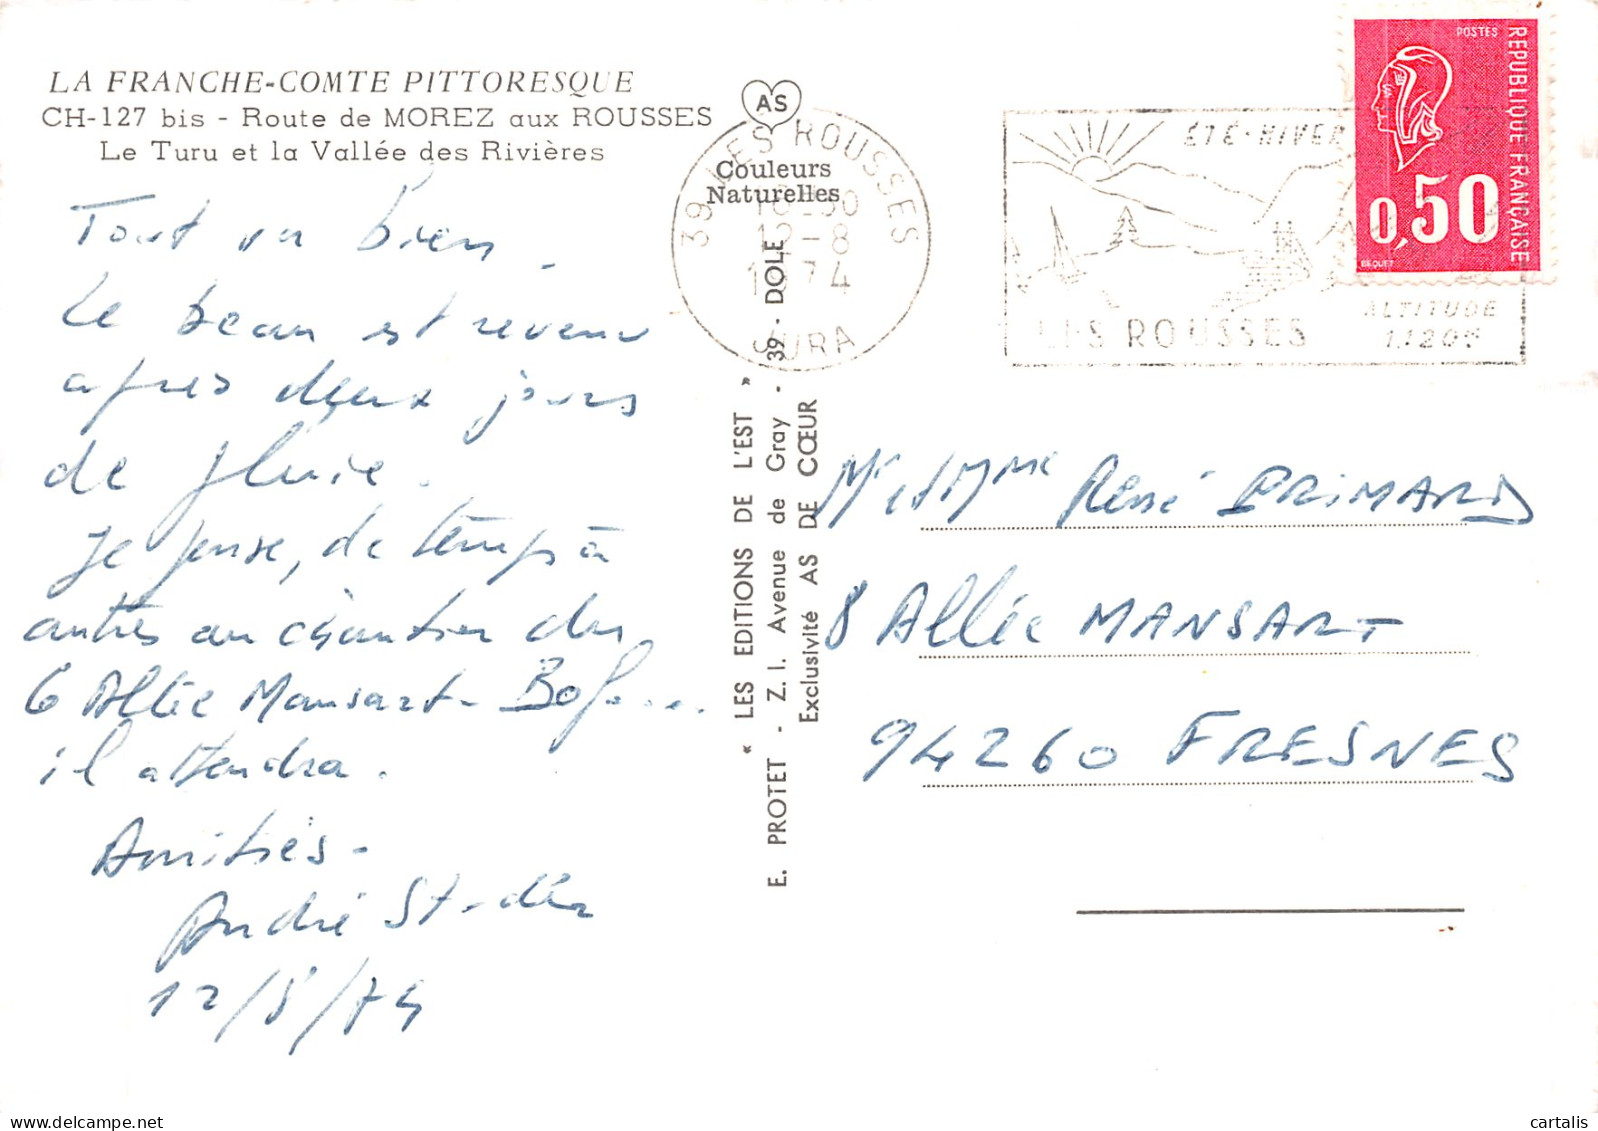 LA FRANCHE-COMTE PITTORESQUE
CH-127 bis - Route de MOREZ aux ROUSSES
Le Turu et la Vallée des Rivières
Tout va bien.
Le beau est revenu
après deux jours
de pluie.
Je pense, de temps à
autres au chantier du
6 Allée Mansart -
il attendra.
Amitiés -
André
12/8/74
AS
Couleurs
Naturelles
39 LES ROUSSES
18-30
12-8
1974
JURA
ÉTÉ-HIVER
LES ROUSSES
ALTITUDE
1.120m
POSTES
REPUBLIQUE FRANÇAISE
0,50
BEQUET
« LES EDITIONS DE L'EST »
E. PROTET - Z. I. Avenue de Gray - 39 - DOLE
Exclusivité AS DE CŒUR
Mr et Mme René PRIMARD
8 Allée MANSART
94260 FRESNES
cartalis